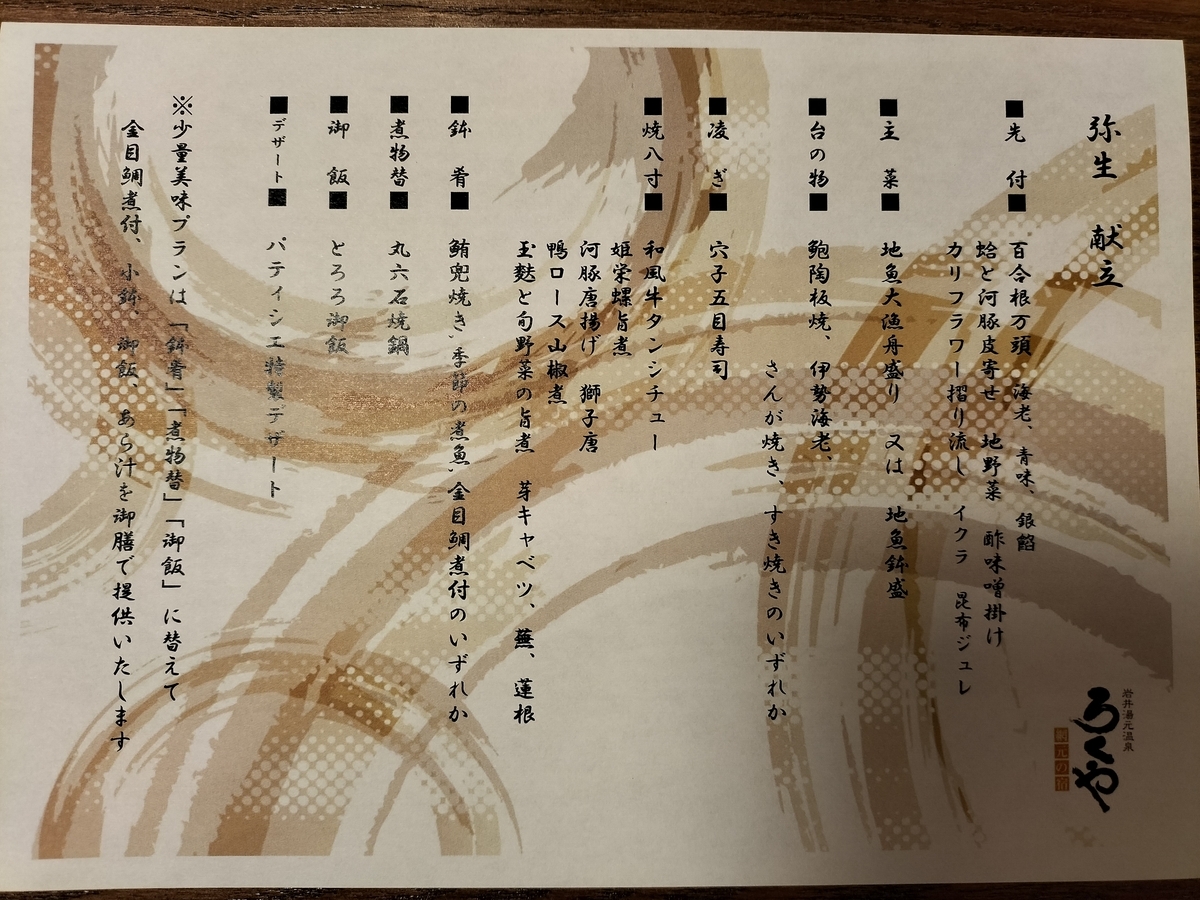 弥生 献立
■先 付■ 百合根万頭 海老、青味、銀餡
蛤と河豚皮寄せ 地野菜 酢味噌掛け
カリフラワー摺り流し イクラ 昆布ジュレ
■主 菜■ 地魚大漁舟盛り 又は 地魚鉢盛
■台の物■ 鮑陶板焼、伊勢海老、
さんが焼き、すき焼きのいずれか
■凌 ぎ■ 穴子五目寿司
■焼八寸■ 和風牛タンシチュー
姫栄螺旨煮
河豚唐揚げ 獅子唐
鴨ロース山椒煮
玉麩と旬野菜の旨煮 芽キャベツ、蕪、蓮根
■鉢 肴■ 鮪兜焼き、季節の煮魚、金目鯛煮付のいずれか
■煮物替■ 丸六石焼鍋
■御 飯■ とろろ御飯
■デザート■ パティシエ特製デザート
※少量美味プランは「鉢肴」「煮物替」「御飯」に替えて
金目鯛煮付、小鉢、御飯、あら汁を御膳で提供いたします
岩井湯元温泉
ろくや
網元の宿